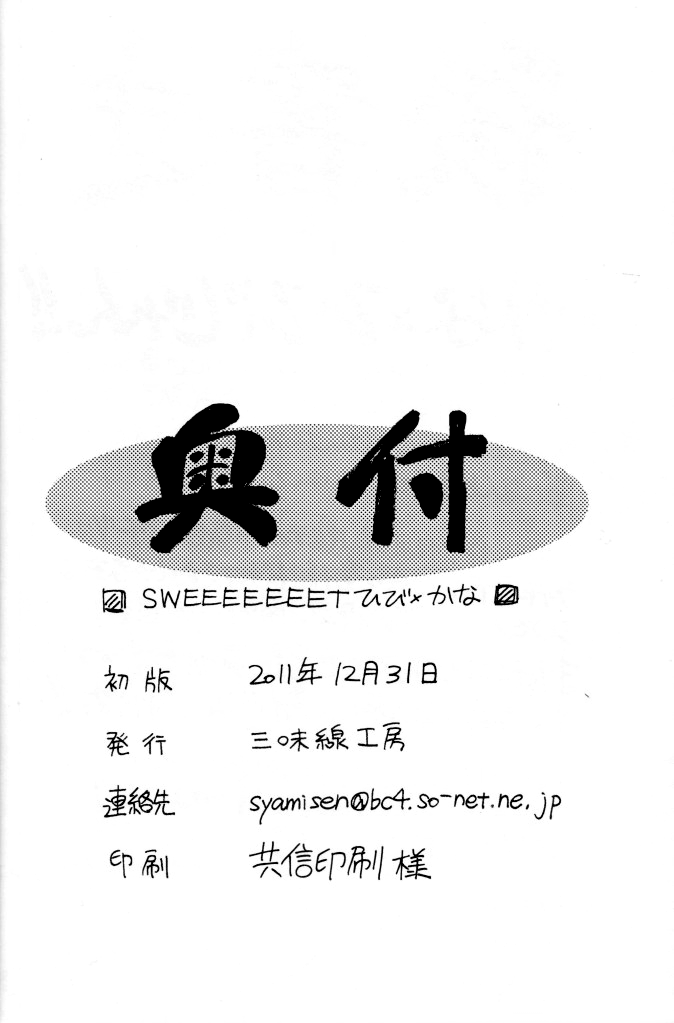 奥付
▨ SWEEEEEEETひび×かな ▨
初版 2011年12月31日
発行 三味線工房
連絡先 syamisen@bc4.so-net.ne.jp
印刷 共信印刷様